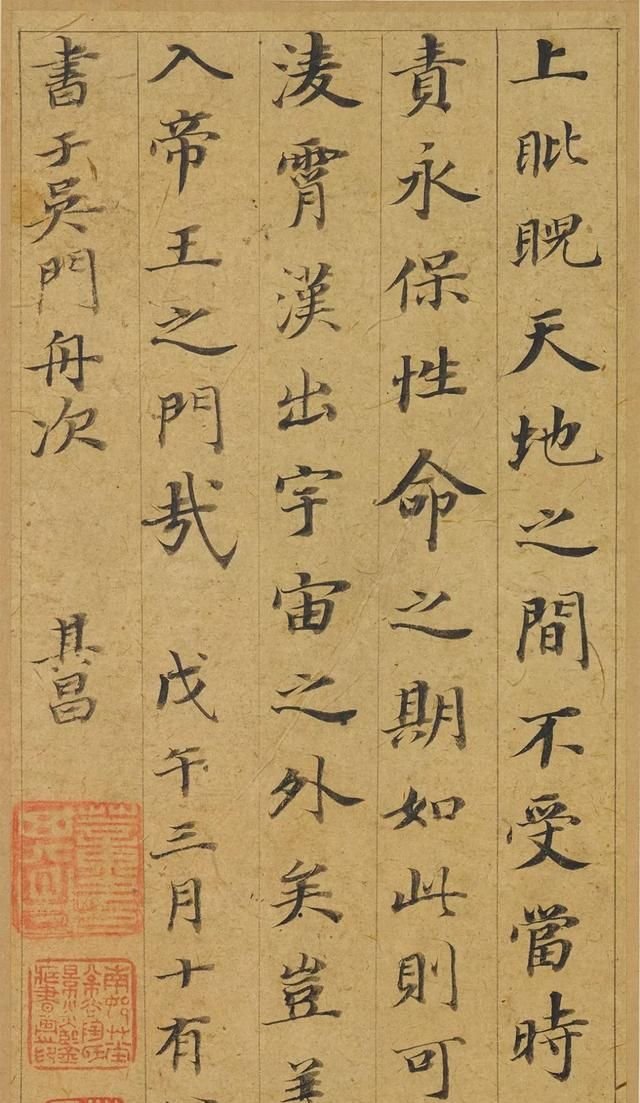 上䀝睨天地之間不受當時
責永保性命之期如此則可
淩霄漢出宇宙之外矣豈
入帝王之門哉 戊午三月十有
書于吳門舟次 其昌